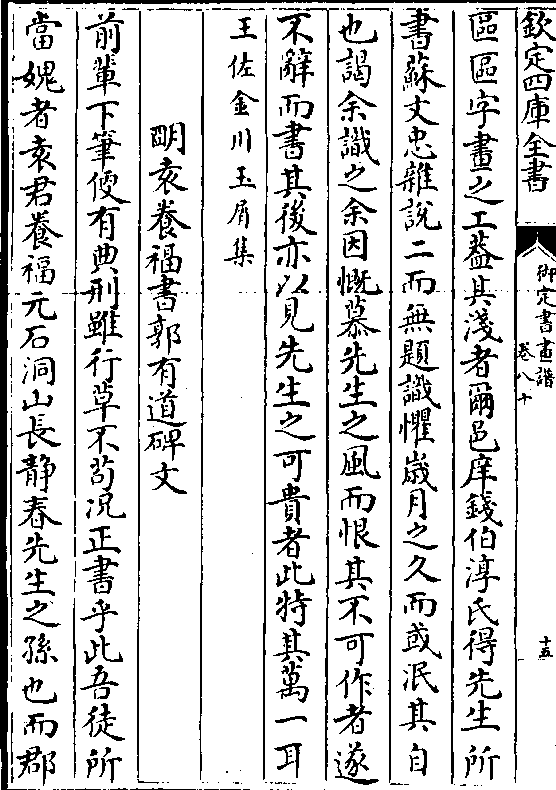 欽定四庫全書
御定書畫譜
卷八十
十五
區區字畫之工葢其淺者爾邑庠錢伯淳氏得先生所
書蘇文忠雜說二而無題識懼歲月之久而或泯其自
也謁余識之余因慨慕先生之風而恨其不可作者遂
不辭而書其後亦以見先生之可貴者此特其萬一耳
王佐金川玉屑集
明袁養福書郭有道碑文
前輩下筆便有典刑雖行草不苟况正書乎此吾徒所
當媿者袁君養福元石洞山長靜春先生之孫也而郡